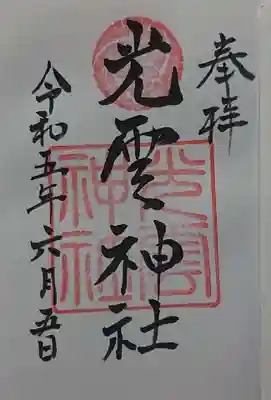 奉拝
光雲神社
令和五年六月五日
光雲
神社